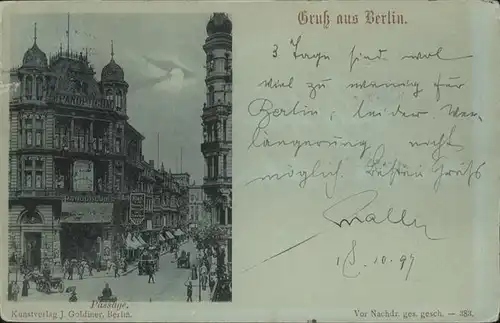 Gruß aus Berlin.
3 Tage sind wol
viel zu wenig für
Berlin, leider Ver-
längerung nicht
möglich. Besten Gruß
10.97
PANOPTICUM
Passage.
Kunstverlag J. Goldiner, Berlin.
Vor Nachdr. ges. gesch. — 383.